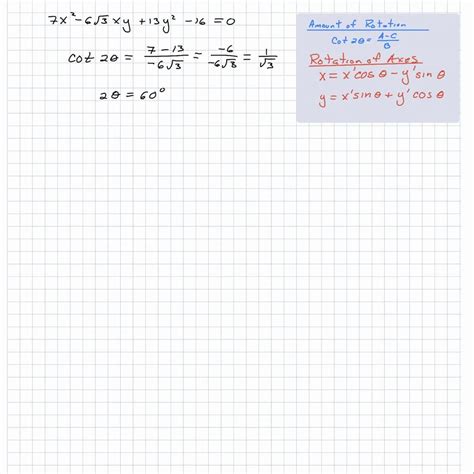 7x² - 6√3 xy + 13y² - 16 = 0
cot 2θ = (7 - 13)/(-6√3) = (-6)/(-6√3) = 1/√3
2θ = 60°
Amount of Rotation
Cot 2θ = (A-C)/B
Rotation of Axes
x = x' cos θ - y' sin θ
y = x' sin θ + y' cos θ